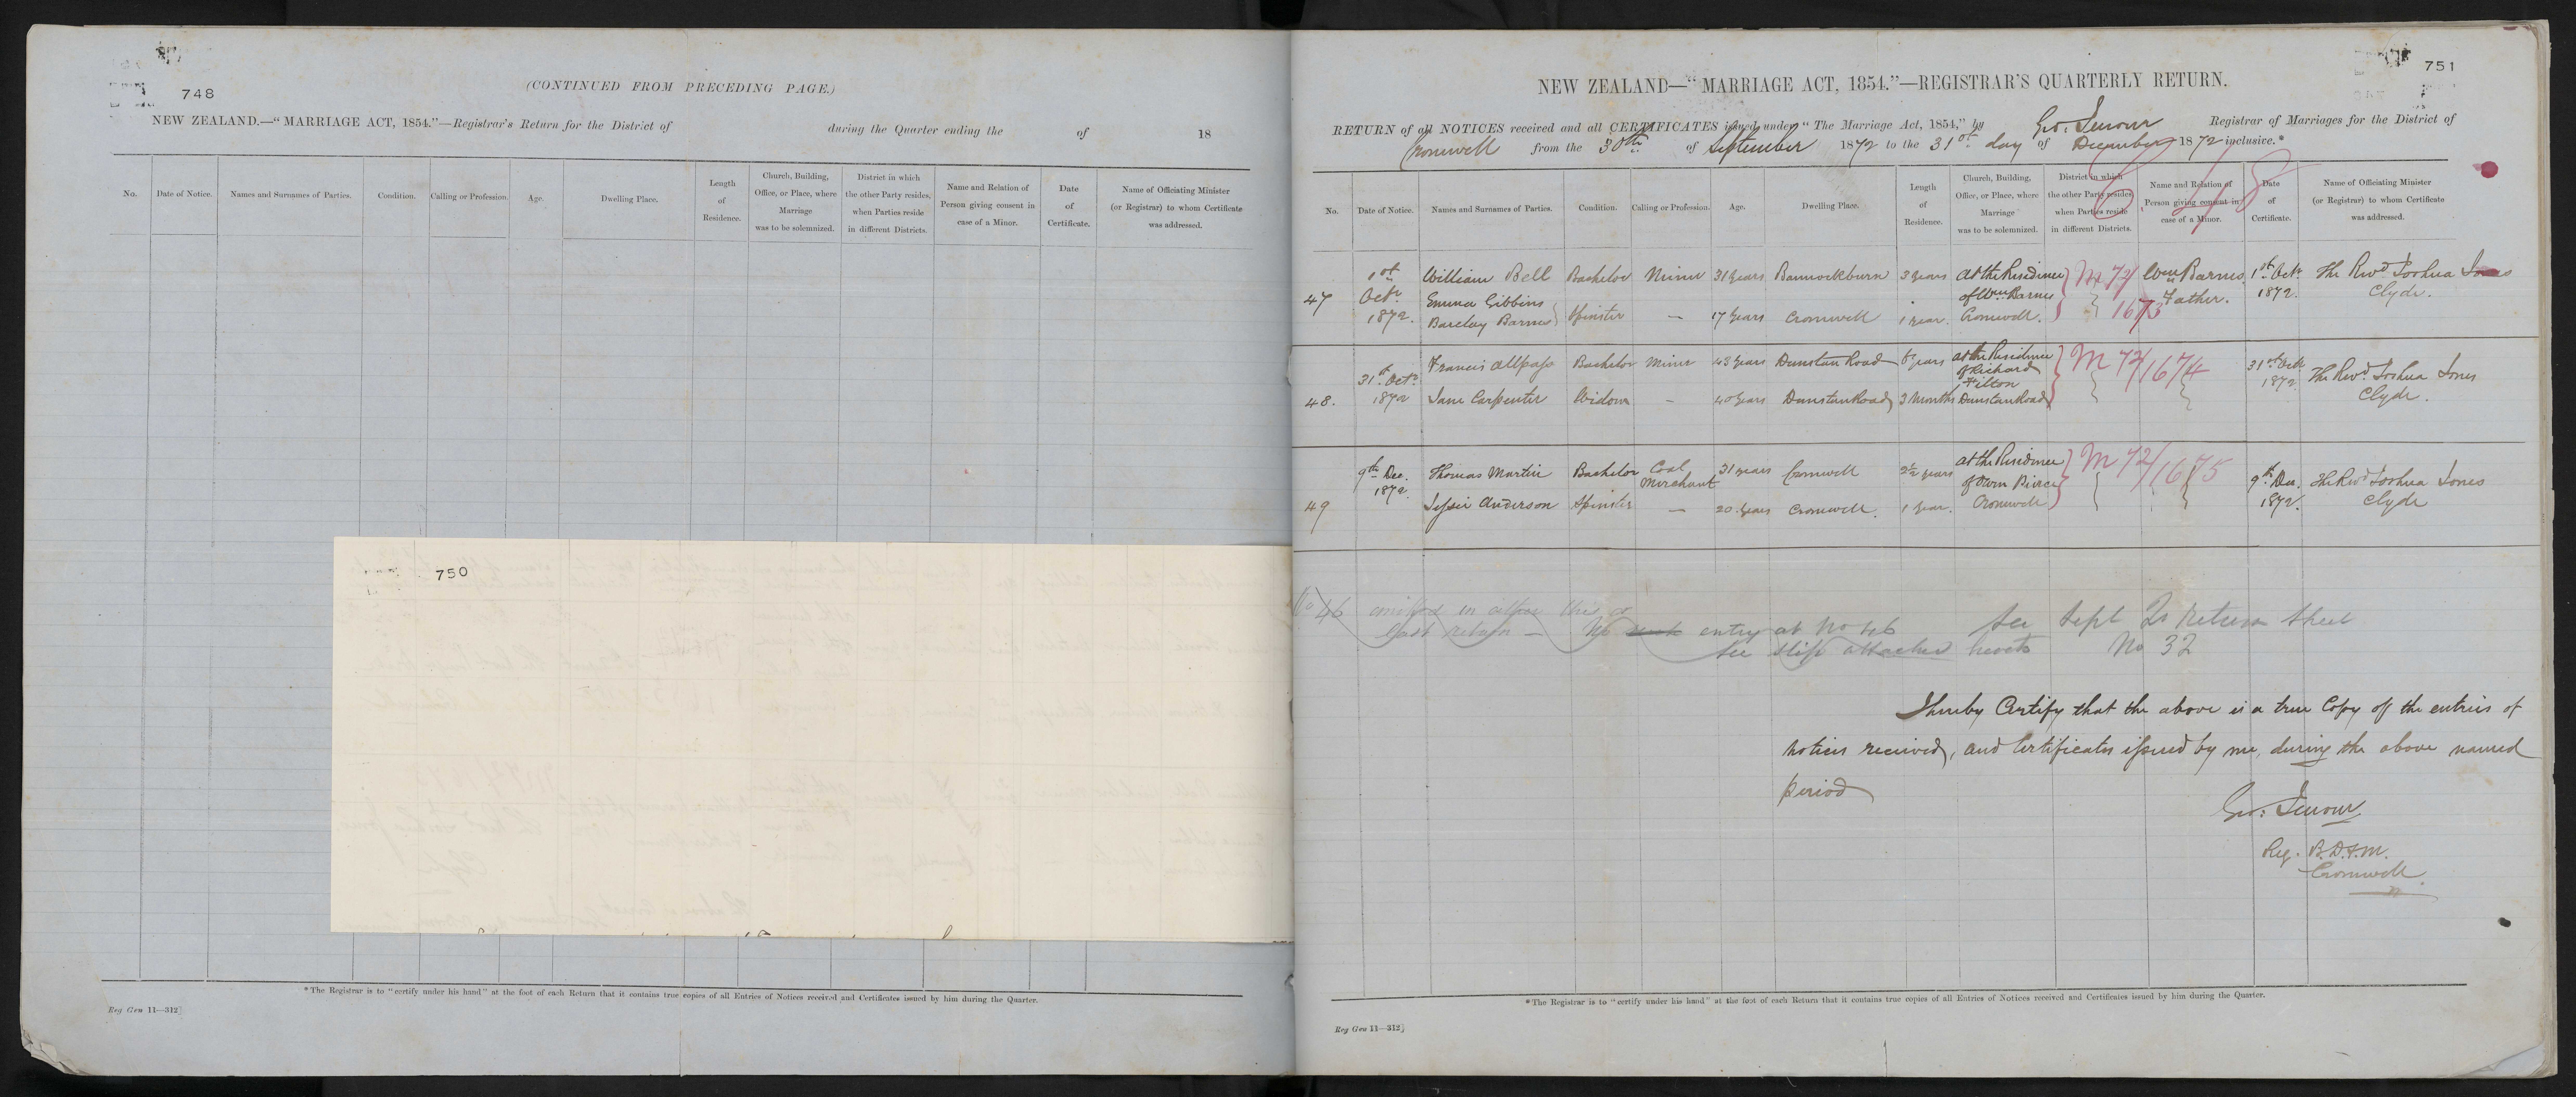 748
(CONTINUED FROM PRECEDING PAGE.)
NEW ZEALAND.—"MARRIAGE ACT, 1854."—Registrar's Return for the District of during the Quarter ending the of 18
No. Date of Notice. Names and Surnames of Parties. Condition. Calling or Profession. Age. Dwelling Place. Length of Residence. Church, Building, Office, or Place, where Marriage was to be solemnized. District in which the other Party resides, when Parties reside in different Districts. Name and Relation of Person giving consent in case of a Minor. Date of Certificate. Name of Officiating Minister (or Registrar) to whom Certificate was addressed.
750
*The Registrar is to "certify under his hand" at the foot of each Return that it contains true copies of all Entries of Notices received and Certificates issued by him during the Quarter.
Reg Gen 11—312]
751
NEW ZEALAND—"MARRIAGE ACT, 1854."—REGISTRAR'S QUARTERLY RETURN.
RETURN of all NOTICES received and all CERTIFICATES issued under "The Marriage Act, 1854," by Geo. Jenour Registrar of Marriages for the District of
Cromwell from the 30th of September 1872 to the 31st day of December 1872 inclusive.*
No. Date of Notice. Names and Surnames of Parties. Condition. Calling or Profession. Age. Dwelling Place. Length of Residence. Church, Building, Office, or Place, where Marriage was to be solemnized. District in which the other Party resides, when Parties reside in different Districts. Name and Relation of Person giving consent in case of a Minor. Date of Certificate. Name of Officiating Minister (or Registrar) to whom Certificate was addressed.
47 1st Octr 1872. William Bell Bachelor Miner 31 years Bannockburn 3 years At the Residence of Wm Barnes Cromwell. M 72/1673 Wm Barnes Father. 1st Octr 1872. The Revd Joshua Jones Clyde.
Emma Gibbins Barclay Barnes Spinster — 17 Years Cromwell 1 year.
48. 31st Octr 1872 Francis Allpass Bachelor Miner 43 years Dunstan Road 8 years At the Residence of Richard Hilton Dunstan Road M 72/1674 31st Octr 1872. The Revd Joshua Jones Clyde.
Jane Carpenter Widow — 40 years Dunstan Road 3 Months
49 9th Dec. 1872. Thomas Martin Bachelor Coal Merchant 31 years Cromwell 2½ years At the Residence of Owen Pierce Cromwell M 72/1675 9th Dec. 1872. The Revd Joshua Jones Clyde
Jessie Anderson Spinster — 20 years Cromwell. 1 year.
No 46 omitted in either this or
last return — No entry at No 46 See Sept Qr Return Sheet
See slip attached hereto No 32
I hereby Certify that the above is a true Copy of the entries of
Notices received, and Certificates issued by me, during the above named
period
Geo: Jenour
Reg. B.D.&M.
Cromwell
*The Registrar is to "certify under his hand" at the foot of each Return that it contains true copies of all Entries of Notices received and Certificates issued by him during the Quarter.
Reg Gen 11—312]